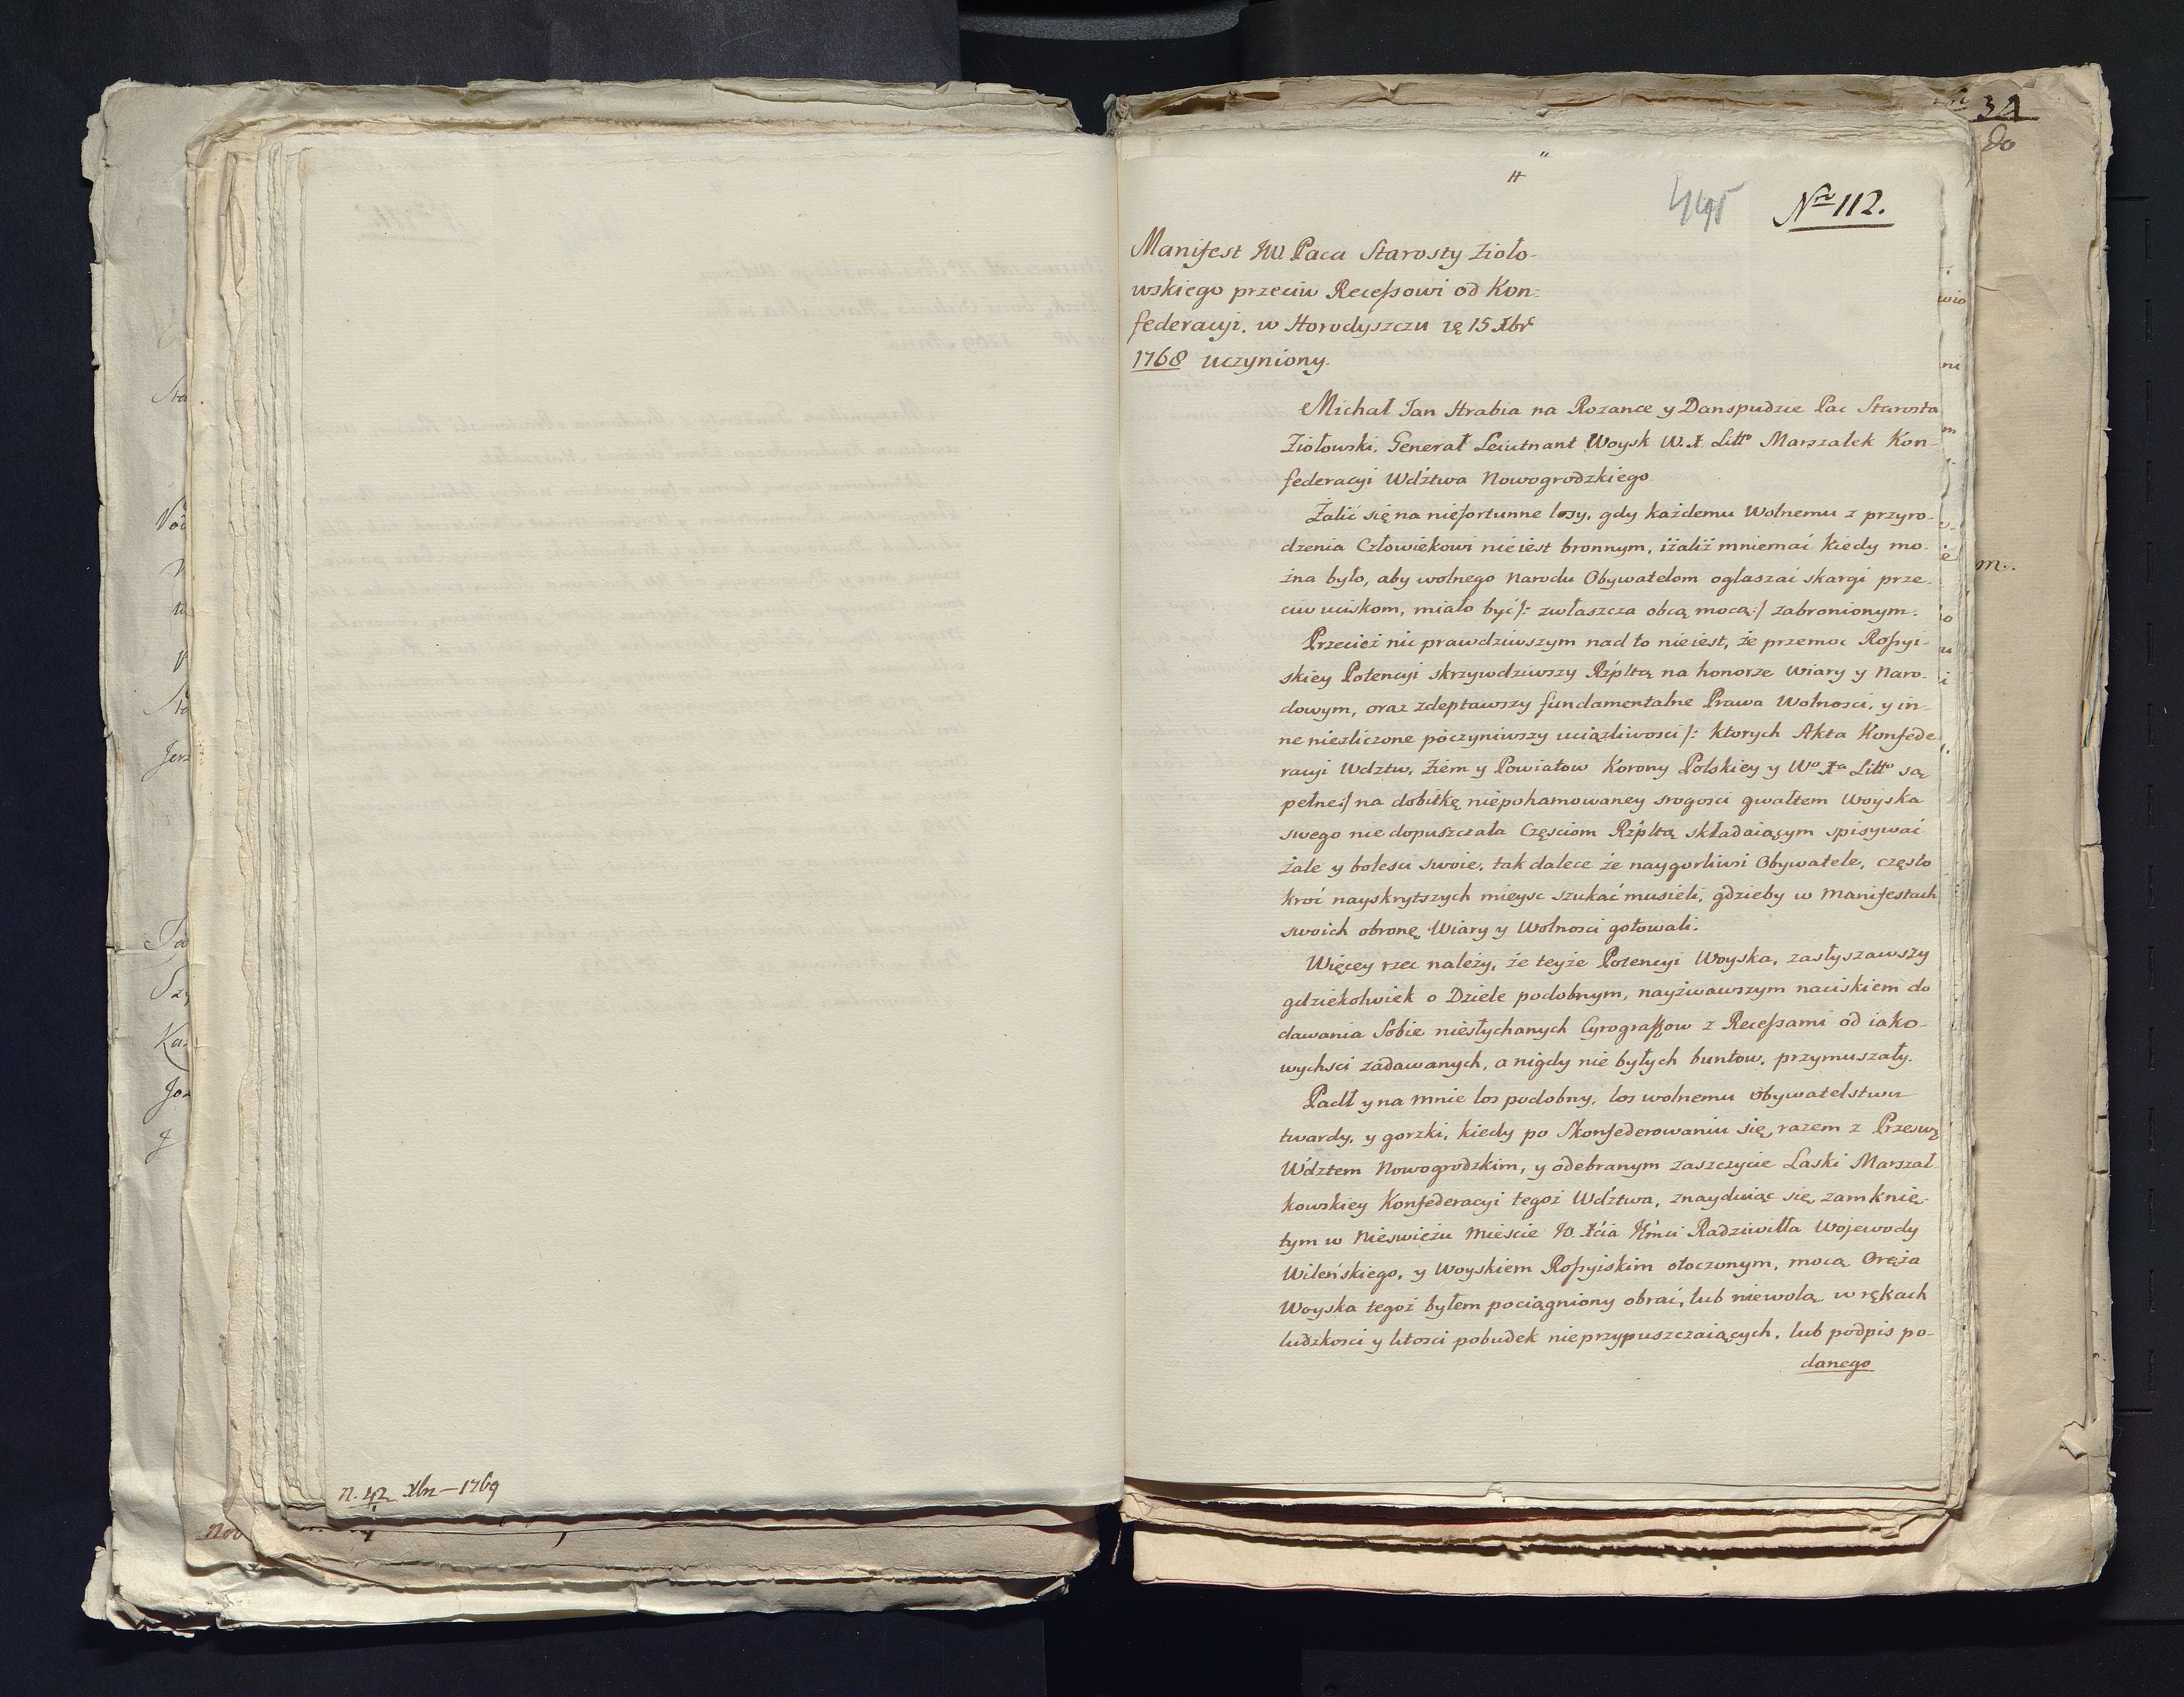 n. 42 Xbr – 1769
34
do
445
Nro 112.
Manifest JW. Paca Starosty Zioło-
wskiego przeciw Recessowi od Kon=
federacyi. w Horodyszczu 1ę 15 Xbr
1768 uczyniony.
Michał Jan Hrabia na Rozance y Danspudzie Pac Starosta
Ziołowski, Generał Leiutnant Woysk W. X. Litto Marszałek Kon-
federacyi Wdztwa Nowogrodzkiego.
Żalić się na niefortunne losy, gdy każdemu Wolnemu z przyro-
dzenia Człowiekowi nie iest bronnym, iżaliż mniemać kiedy mo-
żna było, aby wolnego Narodu Obywatelom ogłaszać skargi prze-
ciw uciskom, miało być /: zwłaszcza obcą mocą :/ zabronionym.
Przecież nic prawdziwszym nad to nieiest, że przemoc Rossyi-
skiey Potencyi skrzywdziwszy Rzpltą na honorze Wiary y Naro-
dowym, oraz zdeptawszy fundamentalne Prawa Wolnosci, y in-
ne niezliczone poczyniwszy uciążliwosci /: ktorych Akta Konfede
racyi Wdztw, Ziem y Powiatow Korony Polskiey y Wo Xa Litto są
pełne :/ na dobitkę niepohamowaney srogosci gwałtem Woyska
swego nie dopuszczała Częsciom Rzpltą składaiącym spisywać
żale y bolesci swoie, tak dalece że naygorliwsi Obywatele, często
kroć nayskrytszych mieysc szukać musieli, gdzieby w Manifestach
swoich obronę Wiary y Wolnosci gotowali.
Więcey rzec należy, że teyże Potencyi Woyska, zasłyszawszy
gdziekolwiek o Dziele podobnym, nayżwawszym naciskiem do
dawania Sobie niesłychanych Cyrografow z Recessami od iako-
wychsci zadawanych, a nigdy nie byłych buntow, przymuszały.
Padł y na mnie los podobny, los wolnemu obywatelstwu
twardy, y gorzki, kiedy po Skonfederowaniu się, razem z Przesw
Wdztem Nowogrodzkim, y odebranym zaszczycie Laski Marszał
kowskiey Konfederacyi tegoż Wdztwa, znayduiąc się zamknię-
tym w Nieswieżu Miescie JO. Xcia Jmci Radziwiłła Wojewody
Wileńskiego, y Woyskiem Rossyiskim otoczonym, mocą Oręża
Woyska tegoż byłem pociągniony obrać, lub niewolą w rękach
ludzkosci y litosci pobudek nieprzypuszczaiących, lub podpis po-
danego